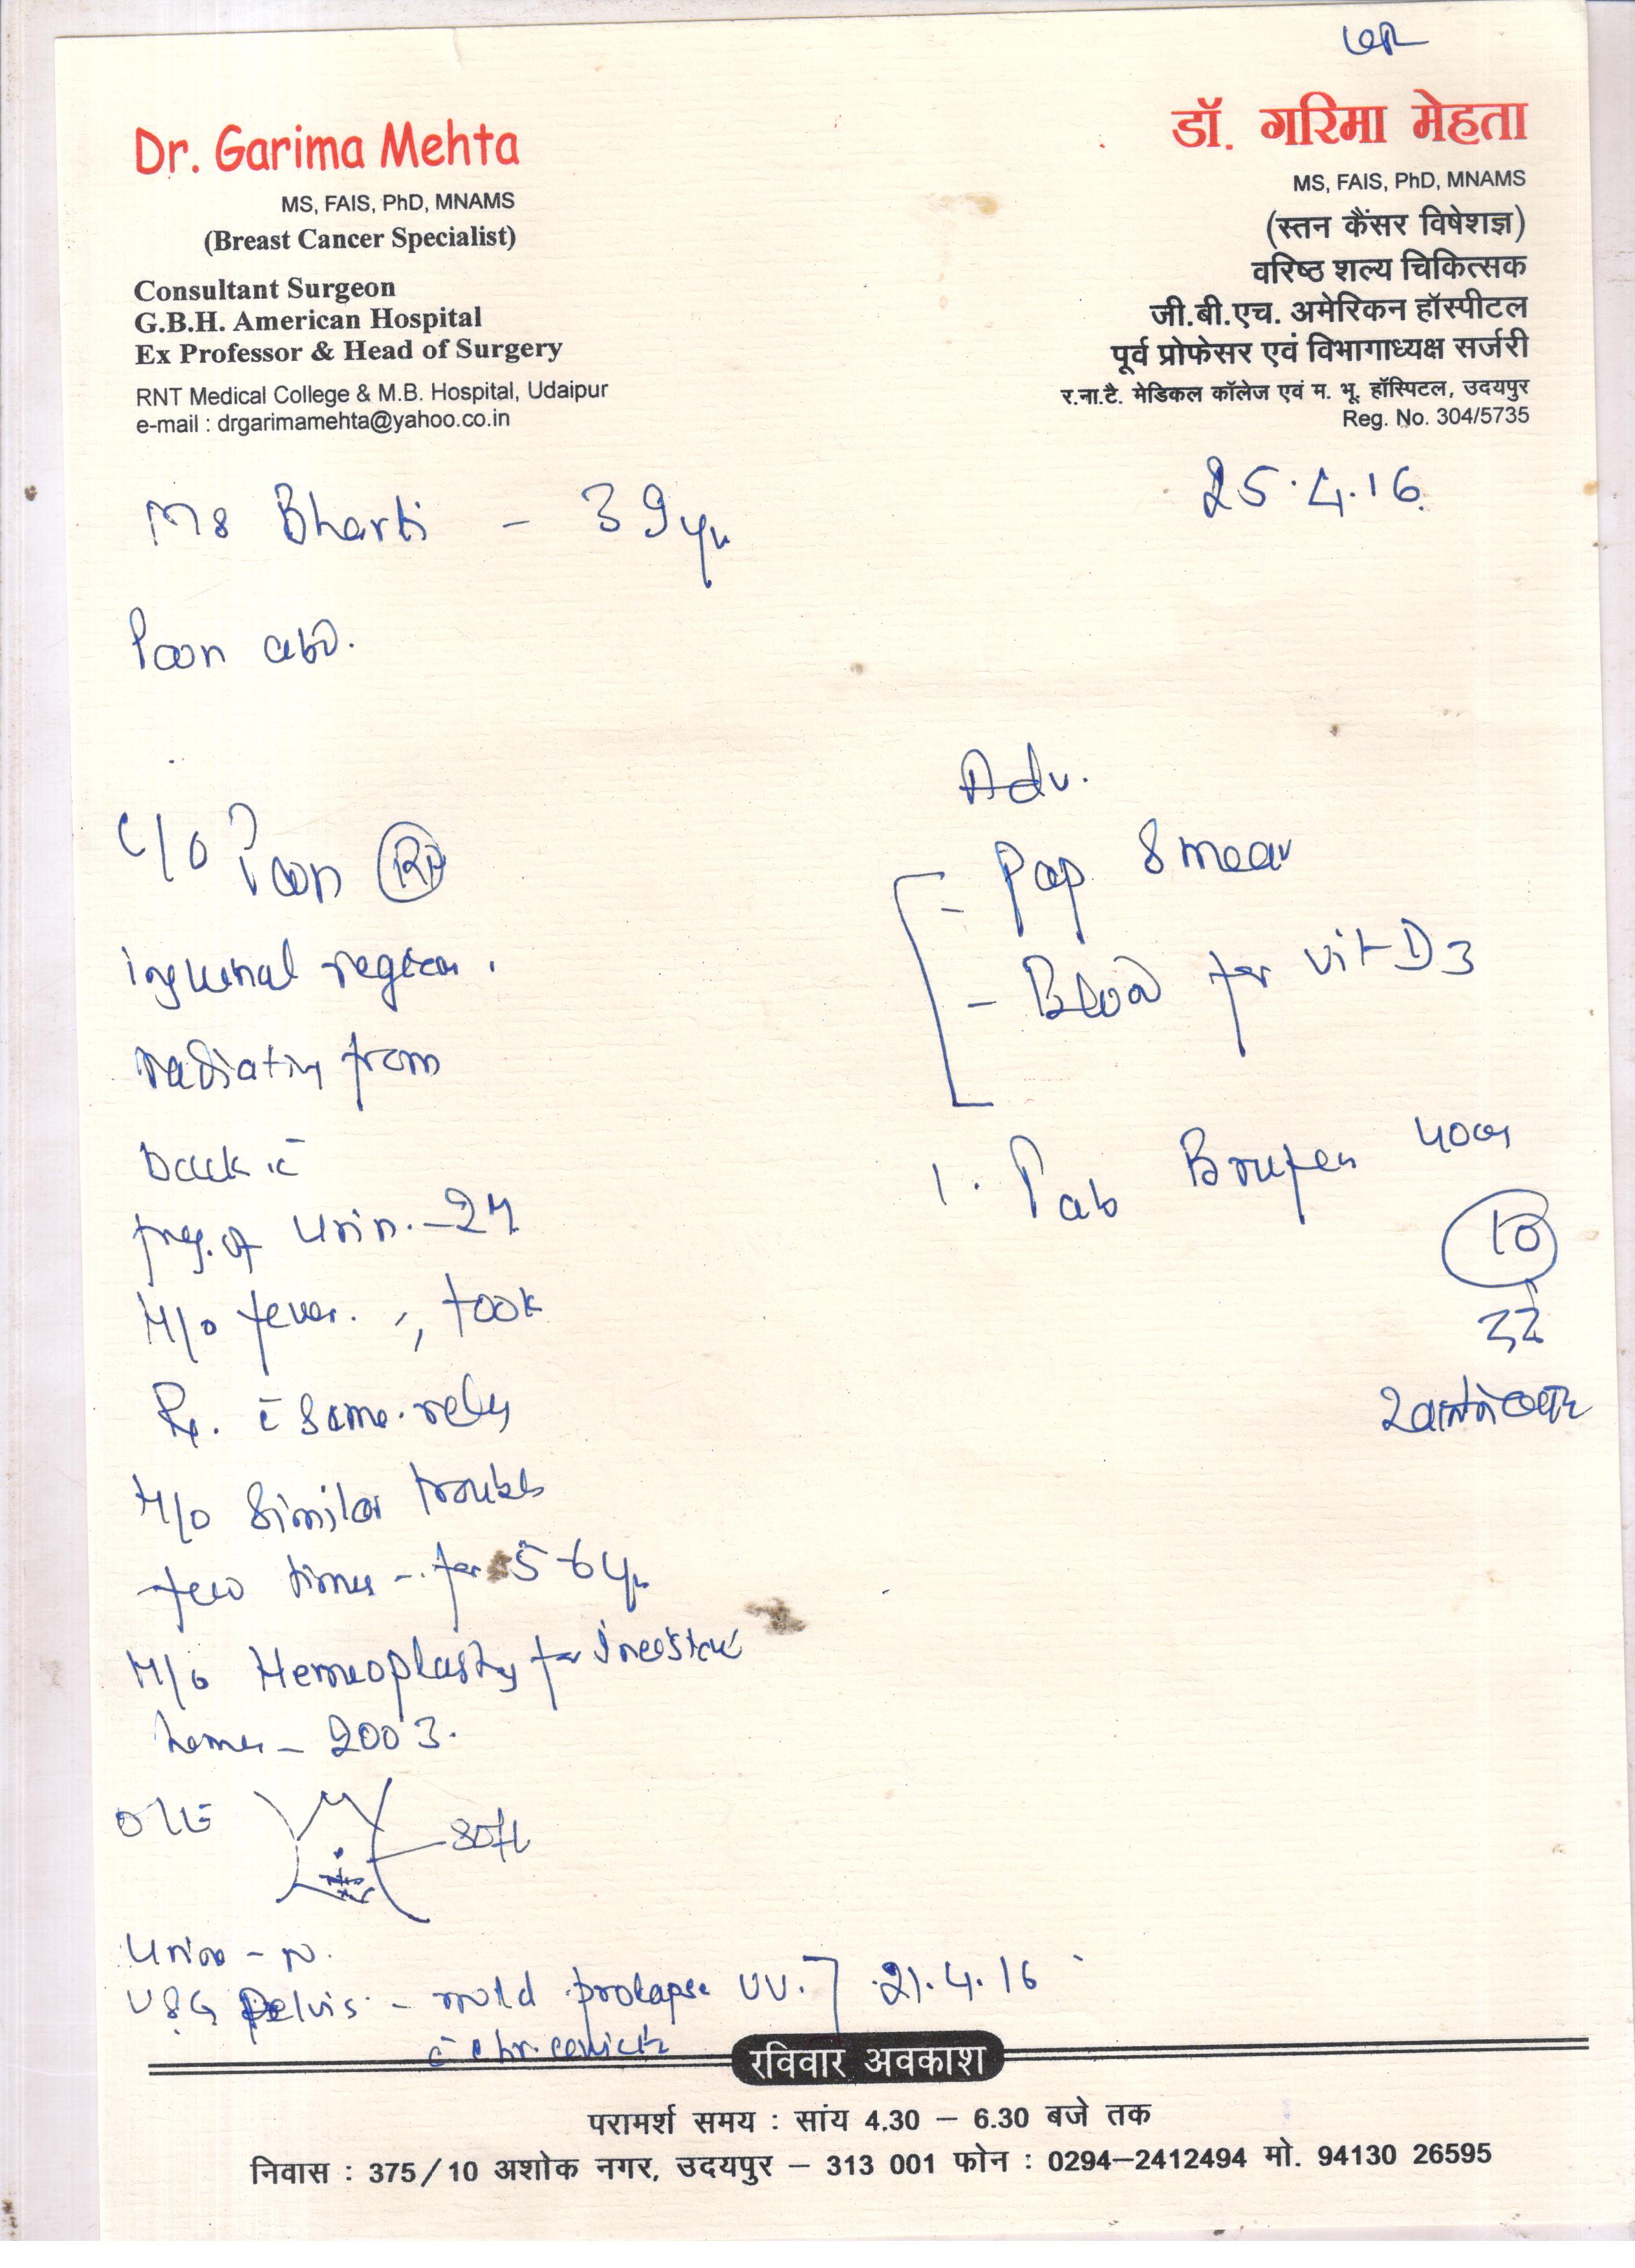 Dr. Garima Mehta
MS, FAIS, PhD, MNAMS
(Breast Cancer Specialist)
Consultant Surgeon
G.B.H. American Hospital
Ex Professor & Head of Surgery
RNT Medical College & M.B. Hospital, Udaipur
e-mail : drgarimamehta@yahoo.co.in
डॉ. गरिमा मेहता
MS, FAIS, PhD, MNAMS
(स्तन कैंसर विषेशज्ञ)
वरिष्ठ शल्य चिकित्सक
जी.बी.एच. अमेरिकन हॉस्पीटल
पूर्व प्रोफेसर एवं विभागाध्यक्ष सर्जरी
र.ना.टै. मेडिकल कॉलेज एवं म. भू. हॉस्पिटल, उदयपुर
Reg. No. 304/5735
25.4.16
Ms Bharti - 39 yr
Pain abd.
C/o Pain Rt
inguinal region.
radiating from
back c̄
freq. of urin. - 2M
H/o fever. , took
Rx. c̄ some relief
H/o similar trouble
few times - for 5-6 yr
H/o Hernioplasty for
hernia - 2003.
O/E
soft
Urine - N.
USG Pelvis - mild prolapse UV. ] 21.4.16
c̄ chr. cervicitis
Adv.
- Pap Smear
- Blood for vit D3
1. Tab Brufen 400
10
रविवार अवकाश
परामर्श समय : सांय 4.30 – 6.30 बजे तक
निवास : 375/10 अशोक नगर, उदयपुर – 313 001 फोन : 0294–2412494 मो. 94130 26595